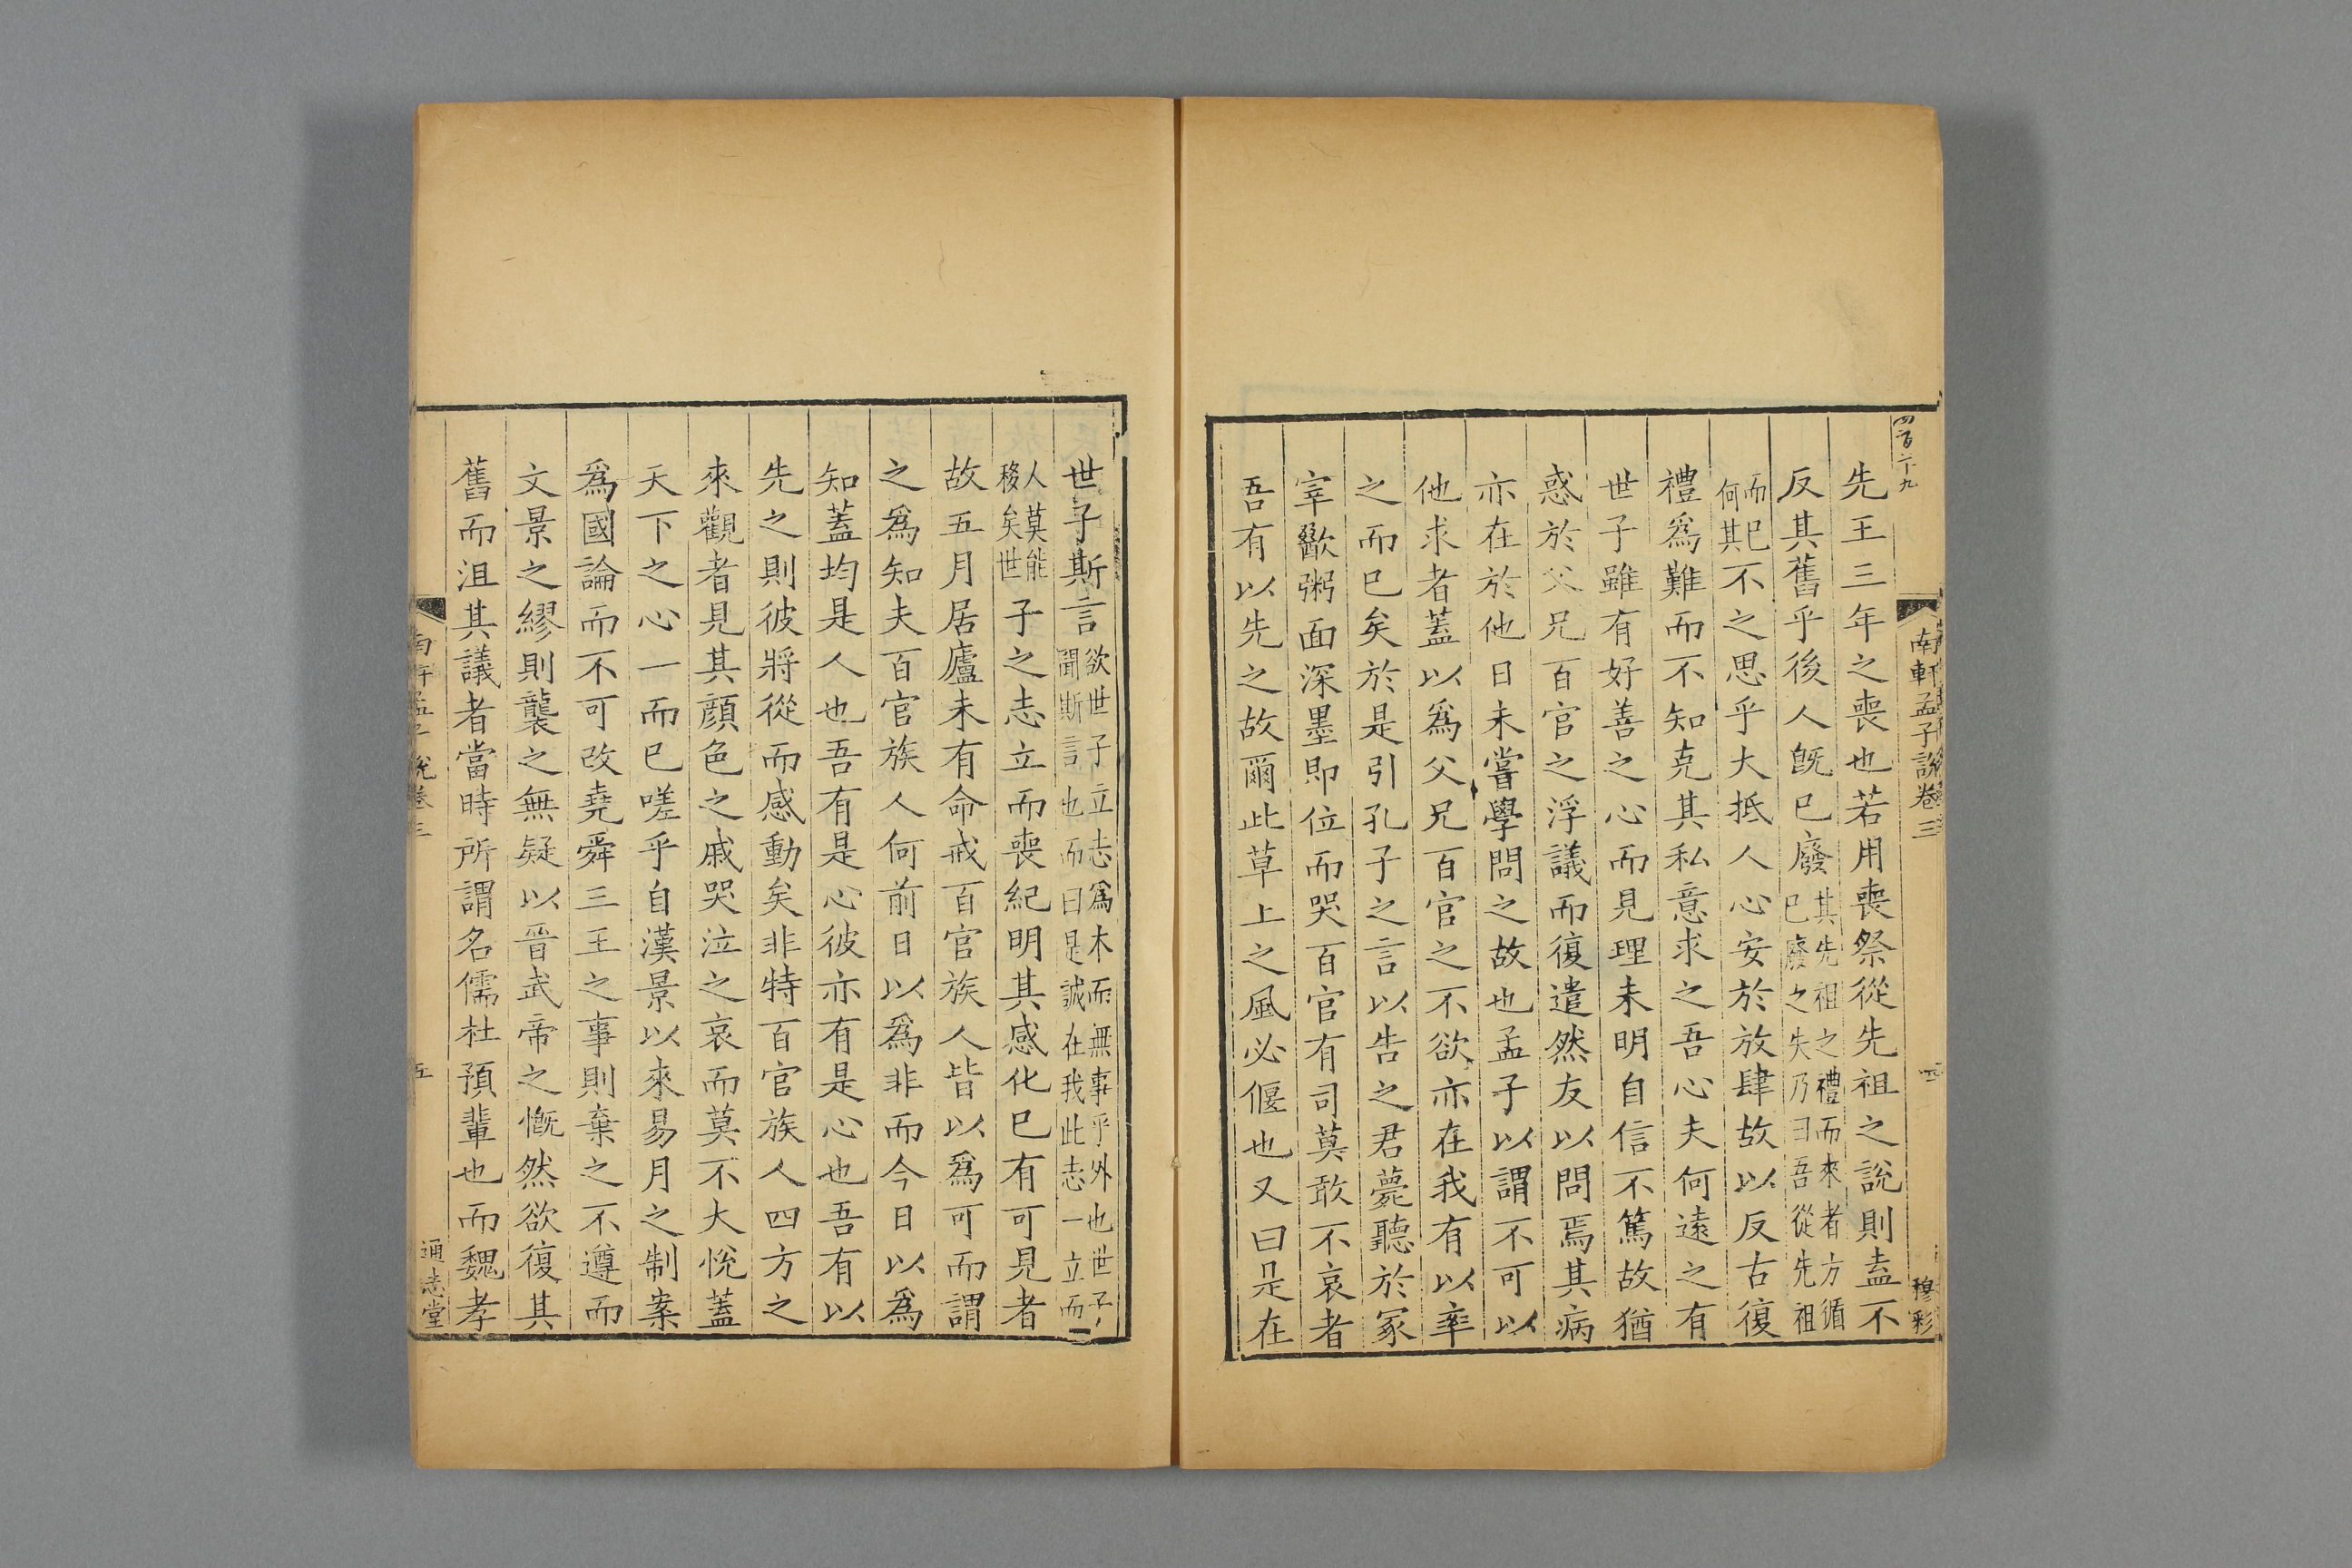 四百二十九
南軒孟子說卷三
四
穆彩
先王三年之喪也若用喪祭從先祖之說則盍不
反其舊乎後人旣已廢其先祖之禮而來者方循已廢之失乃曰吾從先祖
而已何其不之思乎大抵人心安於放肆故以反古復
禮爲難而不知克其私意求之吾心夫何遠之有
世子雖有好善之心而見理未明自信不篤故猶
惑於父兄百官之浮議而復遣然友以問焉其病
亦在於他日未嘗學問之故也孟子以謂不可以
他求者蓋以爲父兄百官之不欲亦在我有以率
之而已矣於是引孔子之言以告之君薨聽於冢
宰歠粥面深墨即位而哭百官有司莫敢不哀者
吾有以先之故爾此草上之風必偃也又曰是在
世子斯言欲世子立志爲本而無事乎外也世子聞斯言也而曰是誠在我此志一立而
人莫能移矣世子之志立而喪紀明其感化已有可見者
故五月居廬未有命戒百官族人皆以爲可而謂
之爲知夫百官族人何前日以爲非而今日以爲
知蓋均是人也吾有是心彼亦有是心也吾有以
先之則彼將從而感動矣非特百官族人四方之
來觀者見其顔色之戚哭泣之哀而莫不大悅蓋
天下之心一而已嗟乎自漢景以來易月之制案
爲國論而不可改堯舜三王之事則棄之不遵而
文景之繆則襲之無疑以晉武帝之慨然欲復其
舊而沮其議者當時所謂名儒杜預輩也而魏孝
南軒孟子說卷三
五
通志堂